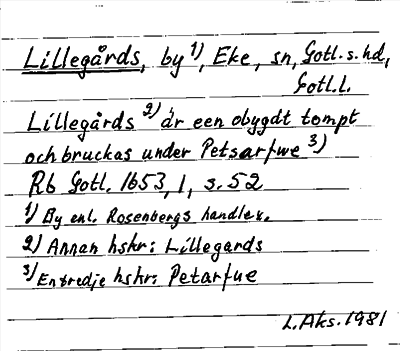 Lillegårds, by 1), Eke, sn, Gotl. s. hd,
Gotl. l.
Lillegårds 2) är een obygdt tompt
och bruckas under Petsarfwe 3)
Rb Gotl. 1653, 1, s. 52
1) By enl. Rosenbergs handlex.
2) Annan hskr: Lillegards
3) En tredje hskr: Petarfue
L. Aks. 1981